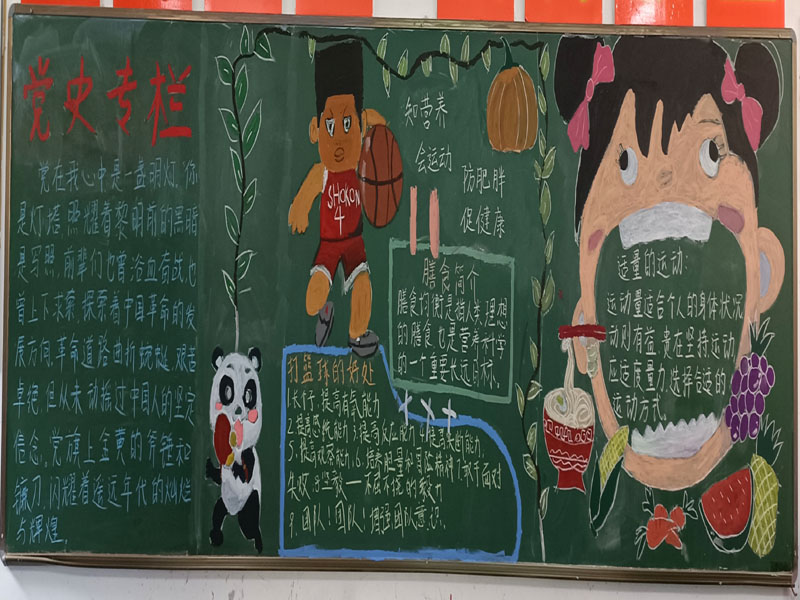 党史专栏
党在我心中是一盏明灯,你
是灯塔照耀着黎明前的黑暗
前辈们也曾浴血奋战也
曾上下求索,探索着中国革命的发
展方向,革命道路曲折蜿蜒,艰苦
卓绝,但从未动摇过中国人的坚定
信念,党旗上金黄的斧锤和
镰刀,闪耀着遥远年代的灿烂
与辉煌。
SHOHOKU
4
知营养
会运动
防肥胖
促健康
膳食简介
膳食均衡是指人类理想
的膳食也是营养科学
的一个重要长远目标。
打篮球的好处
提高有氧能力
2.提高 能力,3.提高反应能力,4.提高判断能力.
5.提高 能力,6.提高胆量和冒险精神,7.敢于面对
失败,8.坚毅——不屈不挠的毅力
9.团队!团队!增强团队意识.
适量的运动:
运动量适合个人的身体状况
动则有益,贵在坚持运动
应适度量力,选择合适的
运动方式.